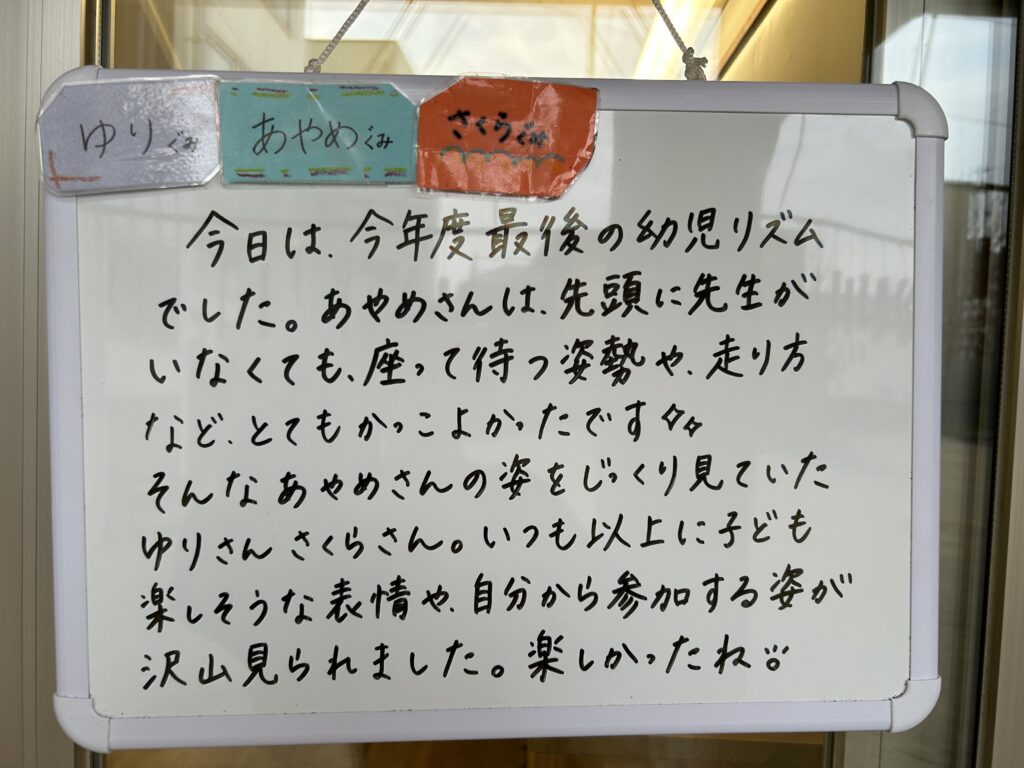 ゆりぐみ あやめぐみ さくらぐみ
今日は、今年度最後の幼児リズム
でした。あやめさんは、先頭に先生が
いなくても、座って待つ姿勢や、走り方
など、とてもかっこよかったです
そんなあやめさんの姿をじっくり見ていた
ゆりさん さくらさん。いつも以上に子ども
楽しそうな表情や、自分から参加する姿が
沢山見られました。楽しかったね